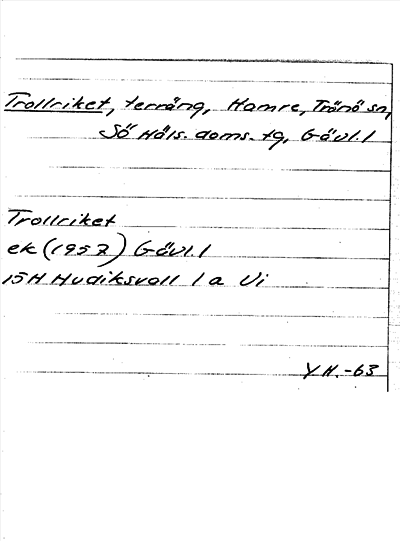 Trollriket, terräng, Hamre, Trönö sn,
Sö Häls. doms. tg, Gävl. l
Trollriket
ek (1957) Gävl. l
15H Hudiksvall 1 a Vi
Y H. -63